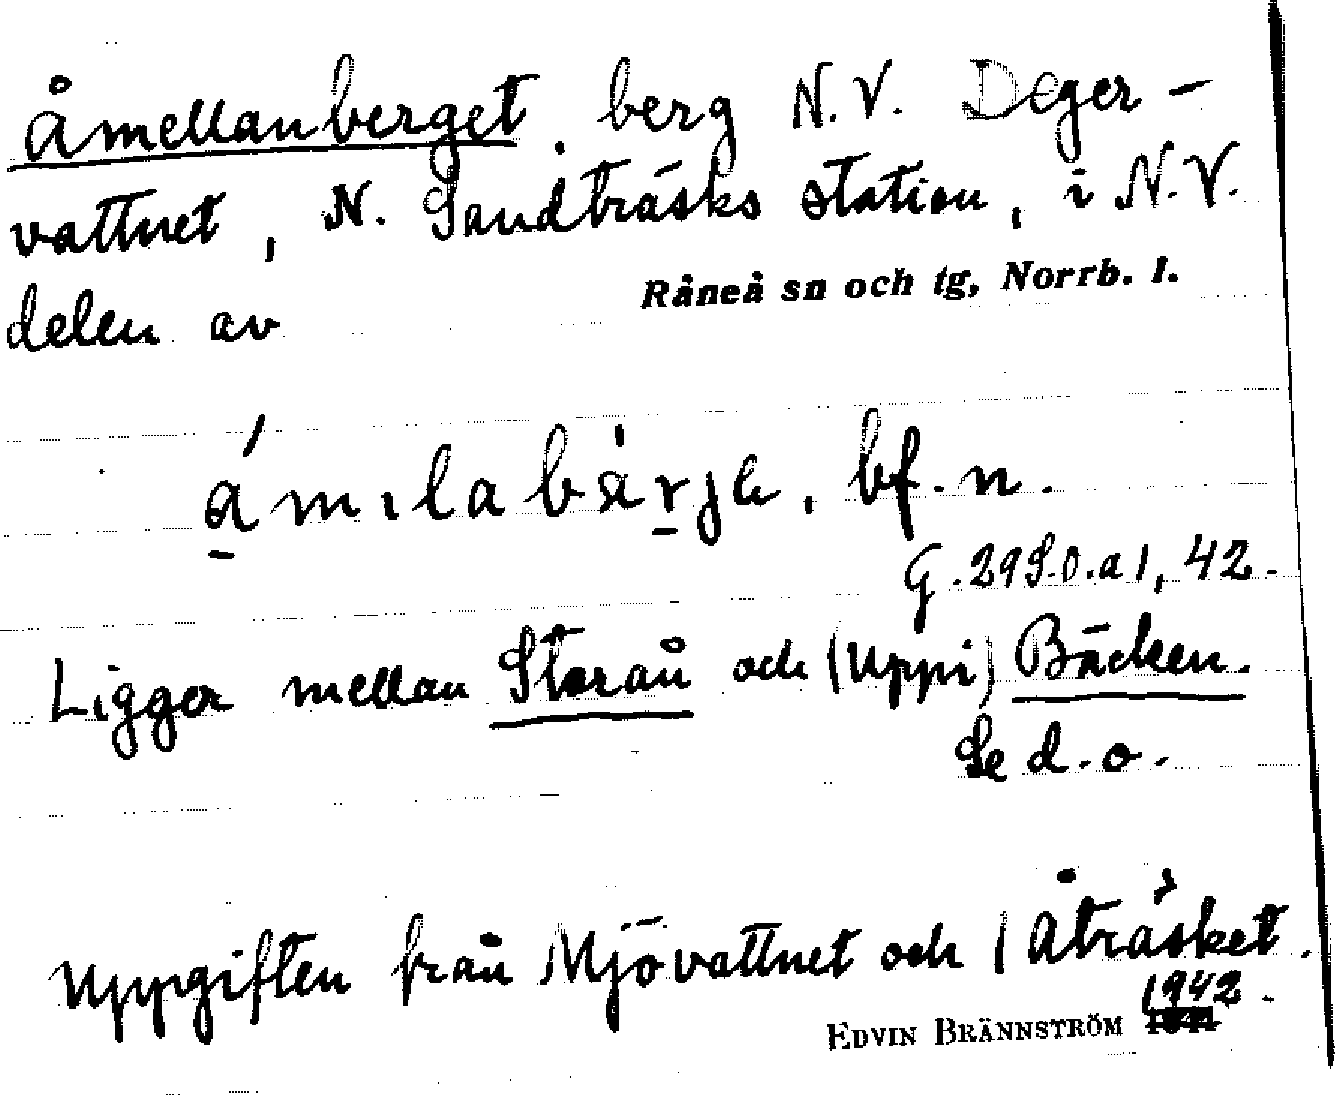 Åmellanberget, berg N.V. Deger-
vattnet, N. Sandträsks station, i N.V.
delen av Råneå sn och tg, Norrb. l.
ámılabärja, bf. n.
G. 29 S.O. a 1, 42.
Ligger mellan Storån och (Uppi) Bäcken.
Se d.o.
Uppgiften från Mjövattnet och Åträsket.
1942.
EDVIN BRÄNNSTRÖM